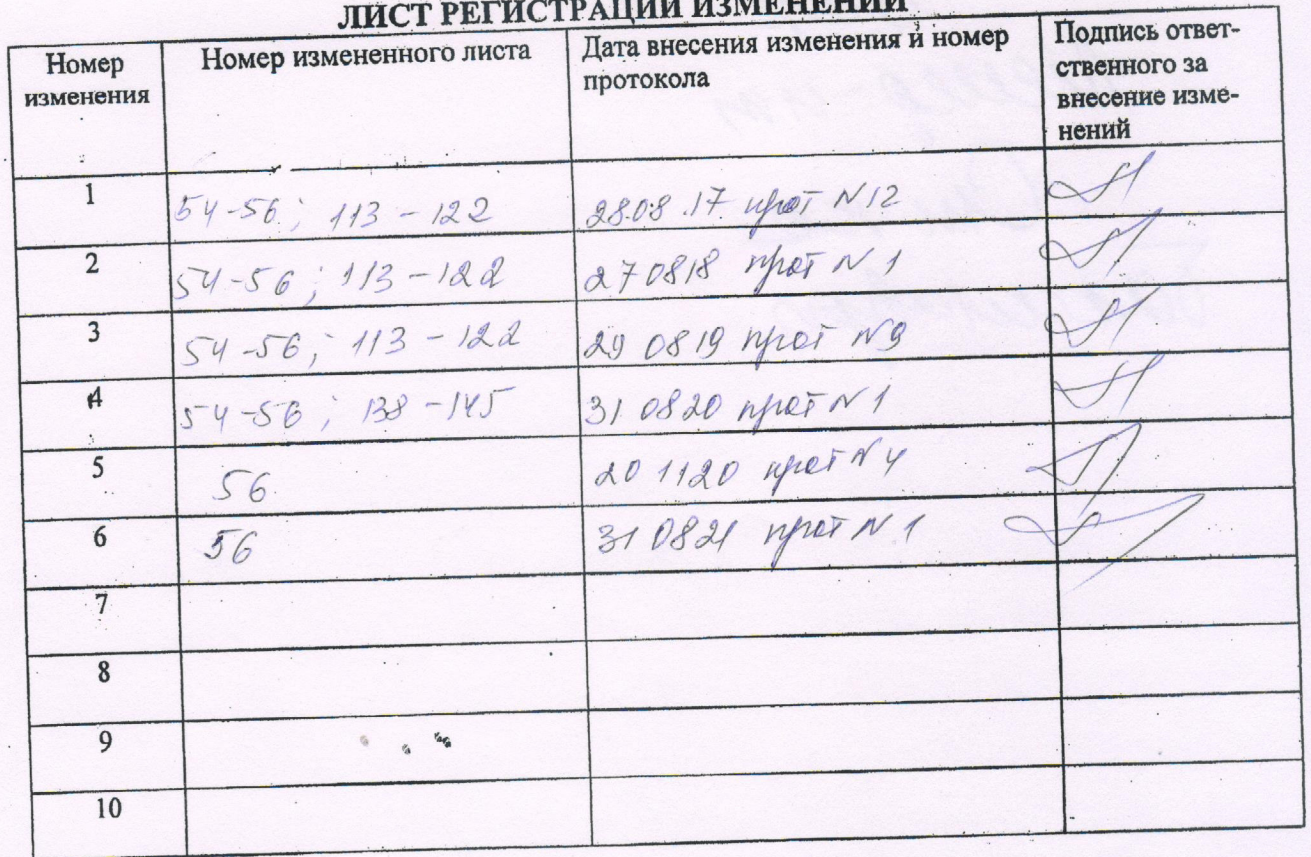 ЛИСТ РЕГИСТРАЦИИ ИЗМЕНЕНИЙ
Номер изменения
Номер измененного листа
Дата внесения изменения и номер протокола
Подпись ответ-
ственного за
внесение изме-
нений
1 54-56; 113-122 28.08.17 прот N12
2 54-56; 113-122 270818 прот N 1
3 54-56; 113-122 29 0819 прот N9
4 54-56; 138-145 31 0820 прот N 1
5 56 20 1120 прот N 4
6 56 31 0821 прот N 1
7
8
9
10